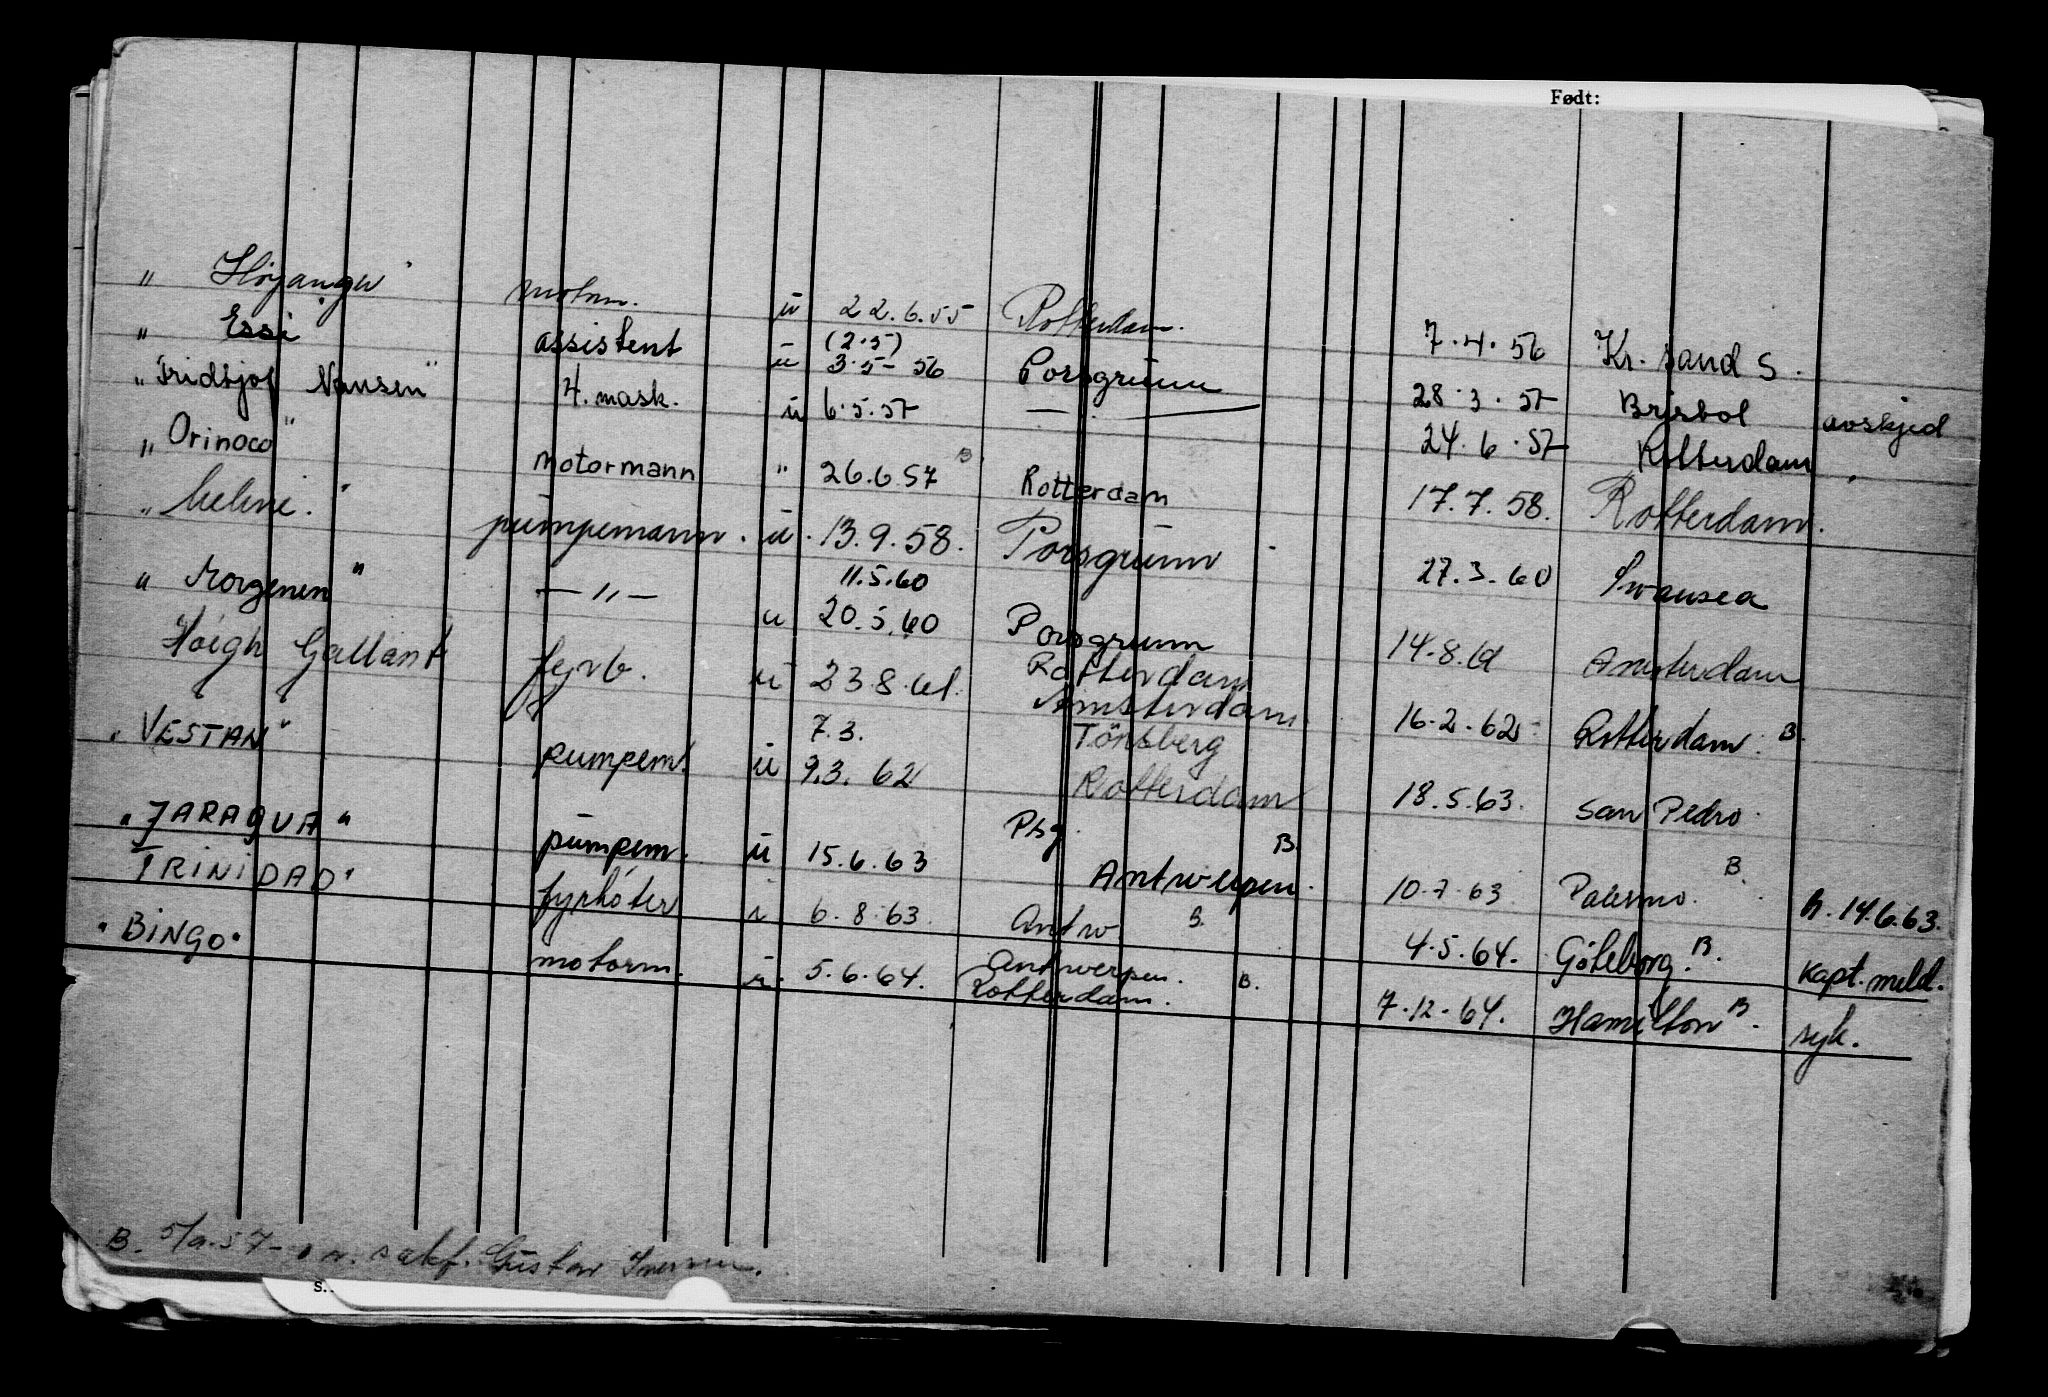 Født:
" Høyanger " motorm. u 22.6.55 Rotterdam. 7.4.56 Kr. sand S.
" Essi " assistent u (2.5) 3.5-56 Porsgrunn 28.3.57 Bristol avskjed
" Fridtjof Nansen " 4. mask. u 6.5.57 — " — 24.6.57 Rotterdam "
" Orinoco " motormann " 26.6 57 B. Rotterdam 17.7.58. Rotterdam.
" " pumpemann. u. 13.9.58. Porsgrunn 27.3.60 Swansea
" " — " — 11.5.60 u 20.5.60 Porsgrunn 14.8.61 Amsterdam
Höegh Gallant fyrb. u 23.8.61. Rotterdam Amsterdam 16.2.62 Rotterdam. B.
" VESTAN " pumpem. u 7.3. 9.3.62 Tönsberg Rotterdam 18.5.63. San Pedro
" JARAGUA " pumpem. u 15.6.63 Psg. Antwerpen. B. 10.7.63 Palermo. B. h. 14.6.63.
TRINIDAD " fyrbøter u 6.8.63. Antw B. 4.5.64. Göteborg. B. kapt. meld.
" BINGO " motorm. u. 5.6.64. Antwerpen. Rotterdam. B. 7.12.64. Hamilton B. syk.
B. Gustav
s.